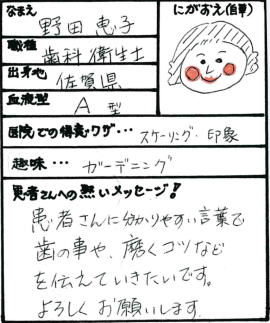 なまえ
野田 恵子
にがおえ(自筆)
職種
歯科衛生士
出身地
佐賀県
血液型
A 型
医院での得意ワザ・・・ スケーリング・印象
趣味・・・ ガーデニング
患者さんへの熱いメッセージ!
患者さんに分かりやすい言葉で
歯の事や、磨くコツなど
を伝えていきたいです。
よろしくお願いします